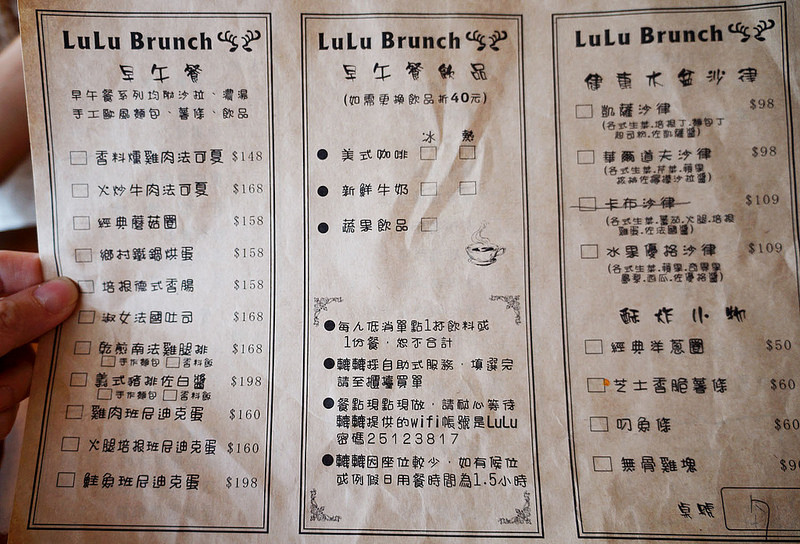 LuLu Brunch
早午餐
早午餐系列均附沙拉、濃湯
手工歐風麵包、薯條、飲品
香料燻雞肉法可夏 $148
火炒牛肉法可夏 $168
經典蘑菇圈 $158
鄉村鐵鍋烘蛋 $158
培根德式香腸 $158
淑女法國吐司 $168
乾煎南法雞腿排 $168
手作麵包 香料飯
義式豬排佐白醬 $198
手作麵包 香料飯
雞肉班尼迪克蛋 $160
火腿培根班尼迪克蛋 $160
鮭魚班尼迪克蛋 $198
LuLu Brunch
早午餐飲品
(如需更換飲品折40元)
冰 熱
美式咖啡
新鮮牛奶
蔬果飲品
每人低消單點1杯飲料或
1份餐，恕不合計
轉轉採自助式服務，填選完
請至櫃檯買單
餐點現點現做，請耐心等待
轉轉提供的wifi帳號是LuLu
密碼25123817
轉轉因座位較少，如有候位
或例假日用餐時間為1.5小時
LuLu Brunch
健康大盆沙律
凱薩沙律 $98
(各式生菜.培根丁.麵包丁
起司粉.佐凱薩醬)
華爾道夫沙律 $98
(各式生菜.芹菜.蘋果
核桃佐檸檬沙拉醬)
卡布沙律 $109
(各式生菜.蕃茄.火腿.培根
雞蛋.佐法國醬)
水果優格沙律 $109
(各式生菜.蘋果.奇異果
鳳梨.西瓜.佐優格醬)
酥炸小物
經典洋蔥圈 $50
芝士香脆薯條 $60
叼魚條 $60
無骨雞塊 $90
桌號